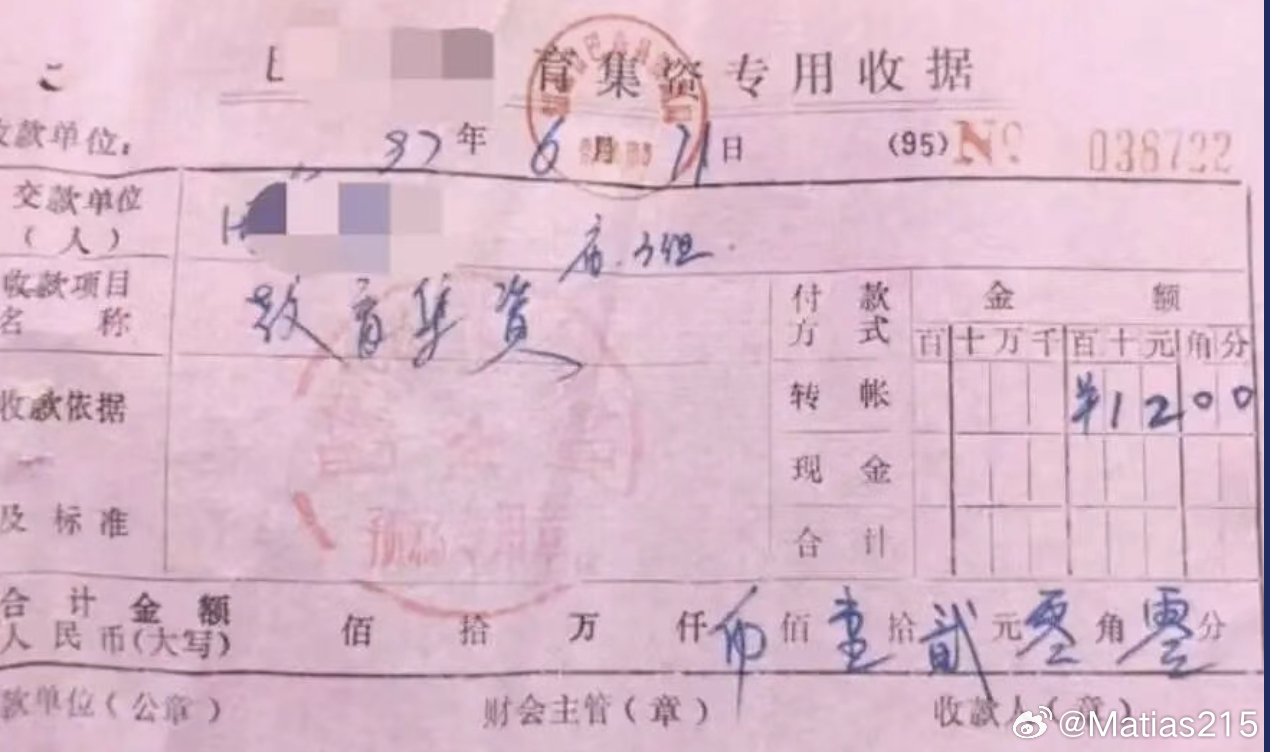 育集资专用收据
收款单位: 97年6月11日 (95) No 036722
交款单位
(人)
收款项目
名称
教育集资
付款
方式
金额
百十万千百十元角分
收款依据
及标准
转帐 ¥1200
现金
合计
预码专用章
合计金额
人民币(大写) 佰拾万仟币佰壹拾贰元零角零分
款单位(公章) 财会主管(章) 收款人(章)
@Matias215